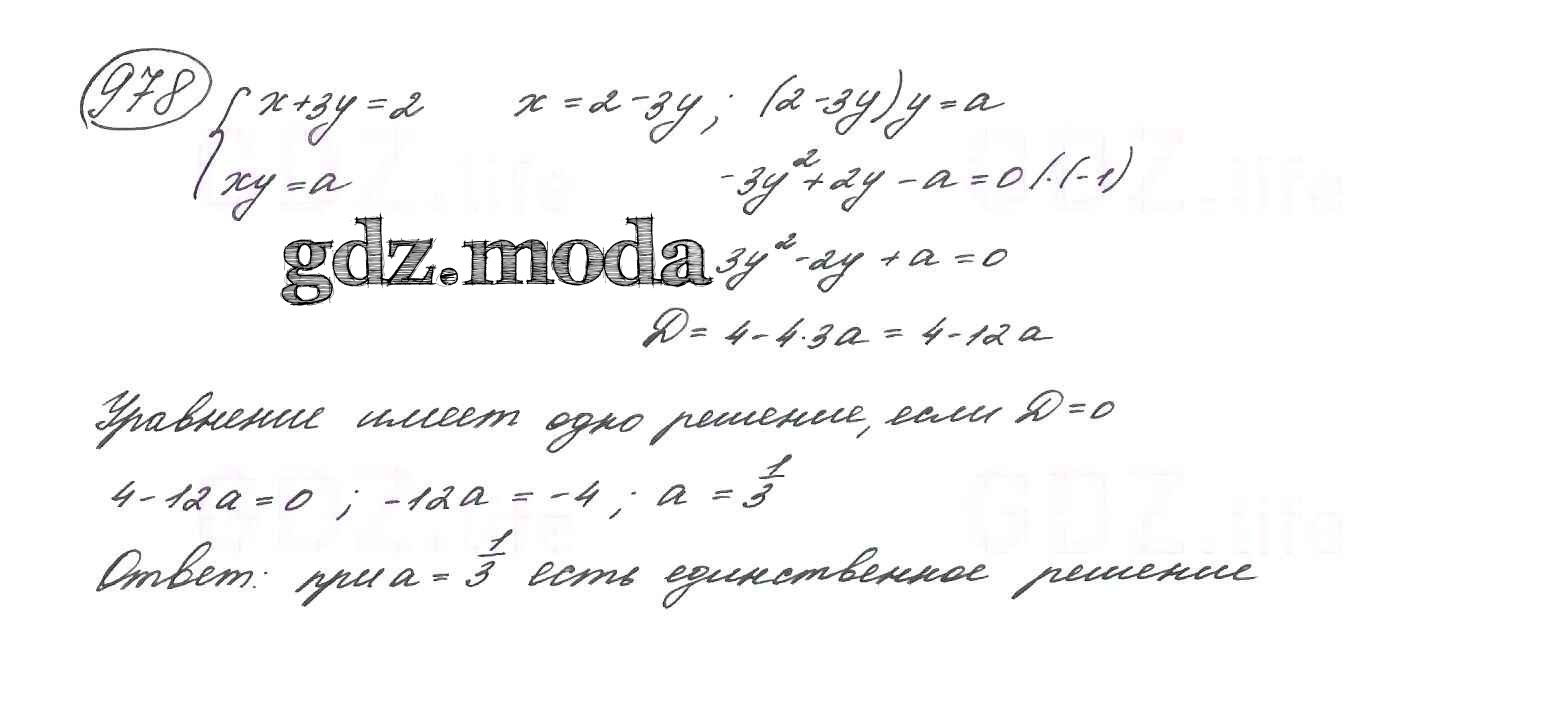 978 { x+3y=2   x=2-3y; (2-3y)y=a
xy=a   -3y²+2y-a=0 /·(-1)
GDZ.life GDZ.life
gdz.moda 3y²-2y+a=0
D=4-4·3a=4-12a
Уравнение имеет одно решение, если D=0
4-12a=0; -12a=-4; a=1/3
GDZ.life GDZ.life
Ответ: при a=1/3 есть единственное решение